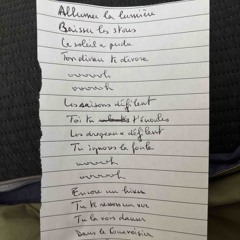 Allumer la lumière
Baisser les stores
Le soleil a perdu
Ton divan te dévore
ouuuuh
ouuuuh
Les saisons défilent
Toi tu t'enroules
Les drapeaux défilent
Tu ignores la foule
ouuuh
ouuuuh
Encore un hiver
Tu te ressers un verre
Tu la vois danser
Dans le